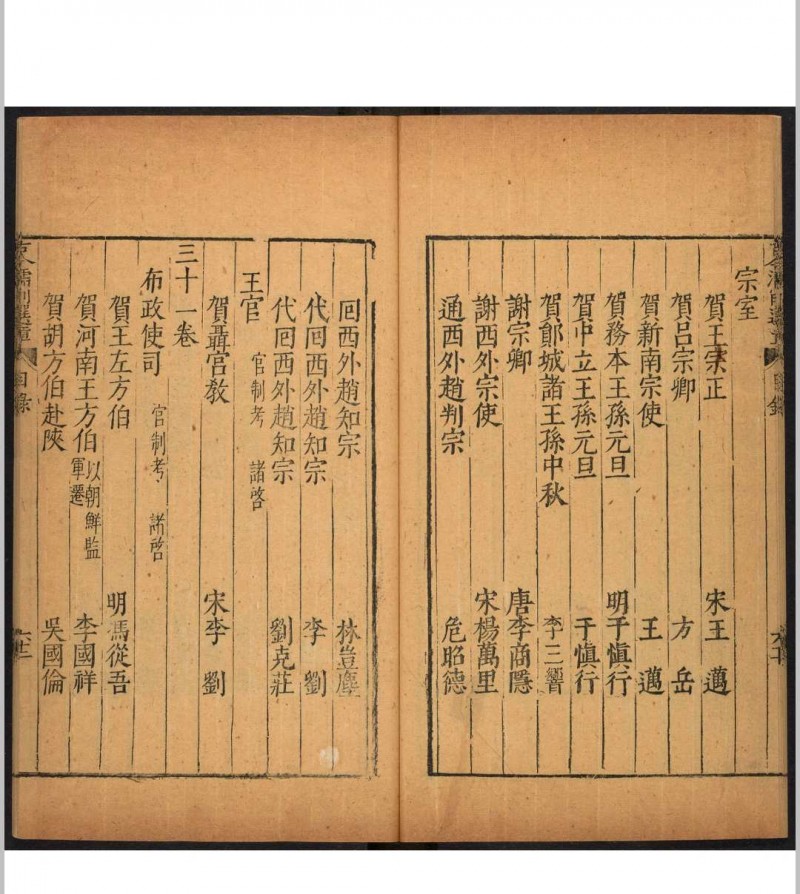 宗室
賀王宗正 宋王邁
賀呂宗卿 方岳
賀新南宗使 王邁
賀務本王孫元旦 明于慎行
賀中立王孫元旦 于慎行
賀郿城諸王孫中秋 李三響
謝宗卿 唐李商隱
謝西外宗使 宋楊萬里
通西外趙判宗 危昭德
回西外趙知宗 林豈塵
代回西外趙知宗 李劉
代回西外趙知宗 劉克莊
王官 官制考 諸啓
賀聶宮教 宋李劉
三十一卷
布政使司 官制考 諸啓
賀王左方伯 明馮從吾
賀河南王方伯 以朝鮮監軍遷 李國祥
賀胡方伯赴陝 吳國倫
目錄